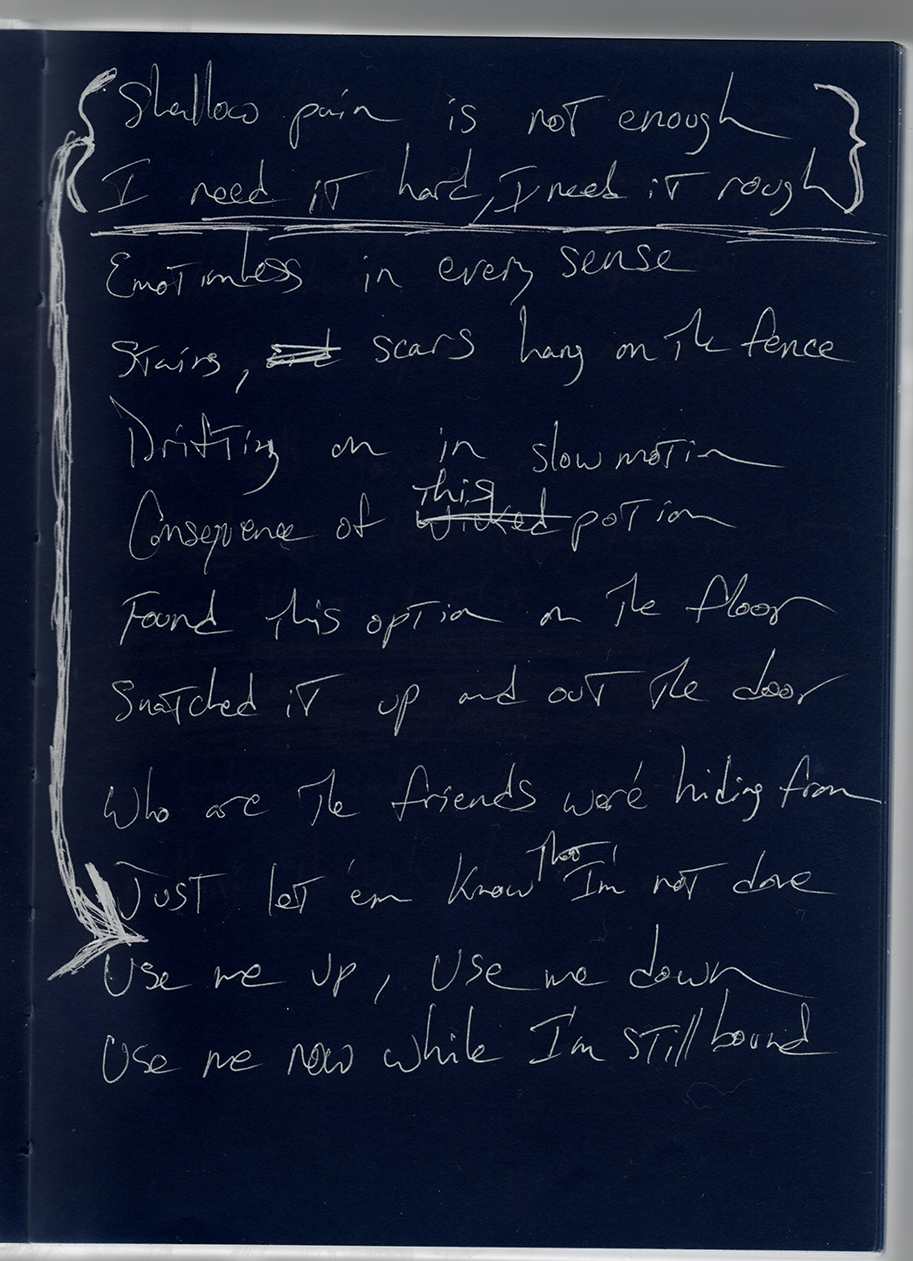 Shallow pain is not enough
I need it hard, I need it rough
Emotionless in every sense
Stairs, scars hang on the fence
Drifting on in slow motion
This
Consequence of wicked potion
Found this option on the floor
Snatched it up and out the door
Who are the friends were' hiding from
that
Just let 'em know I'm not done
Use me up, Use me down
Use me now while I'm still bound